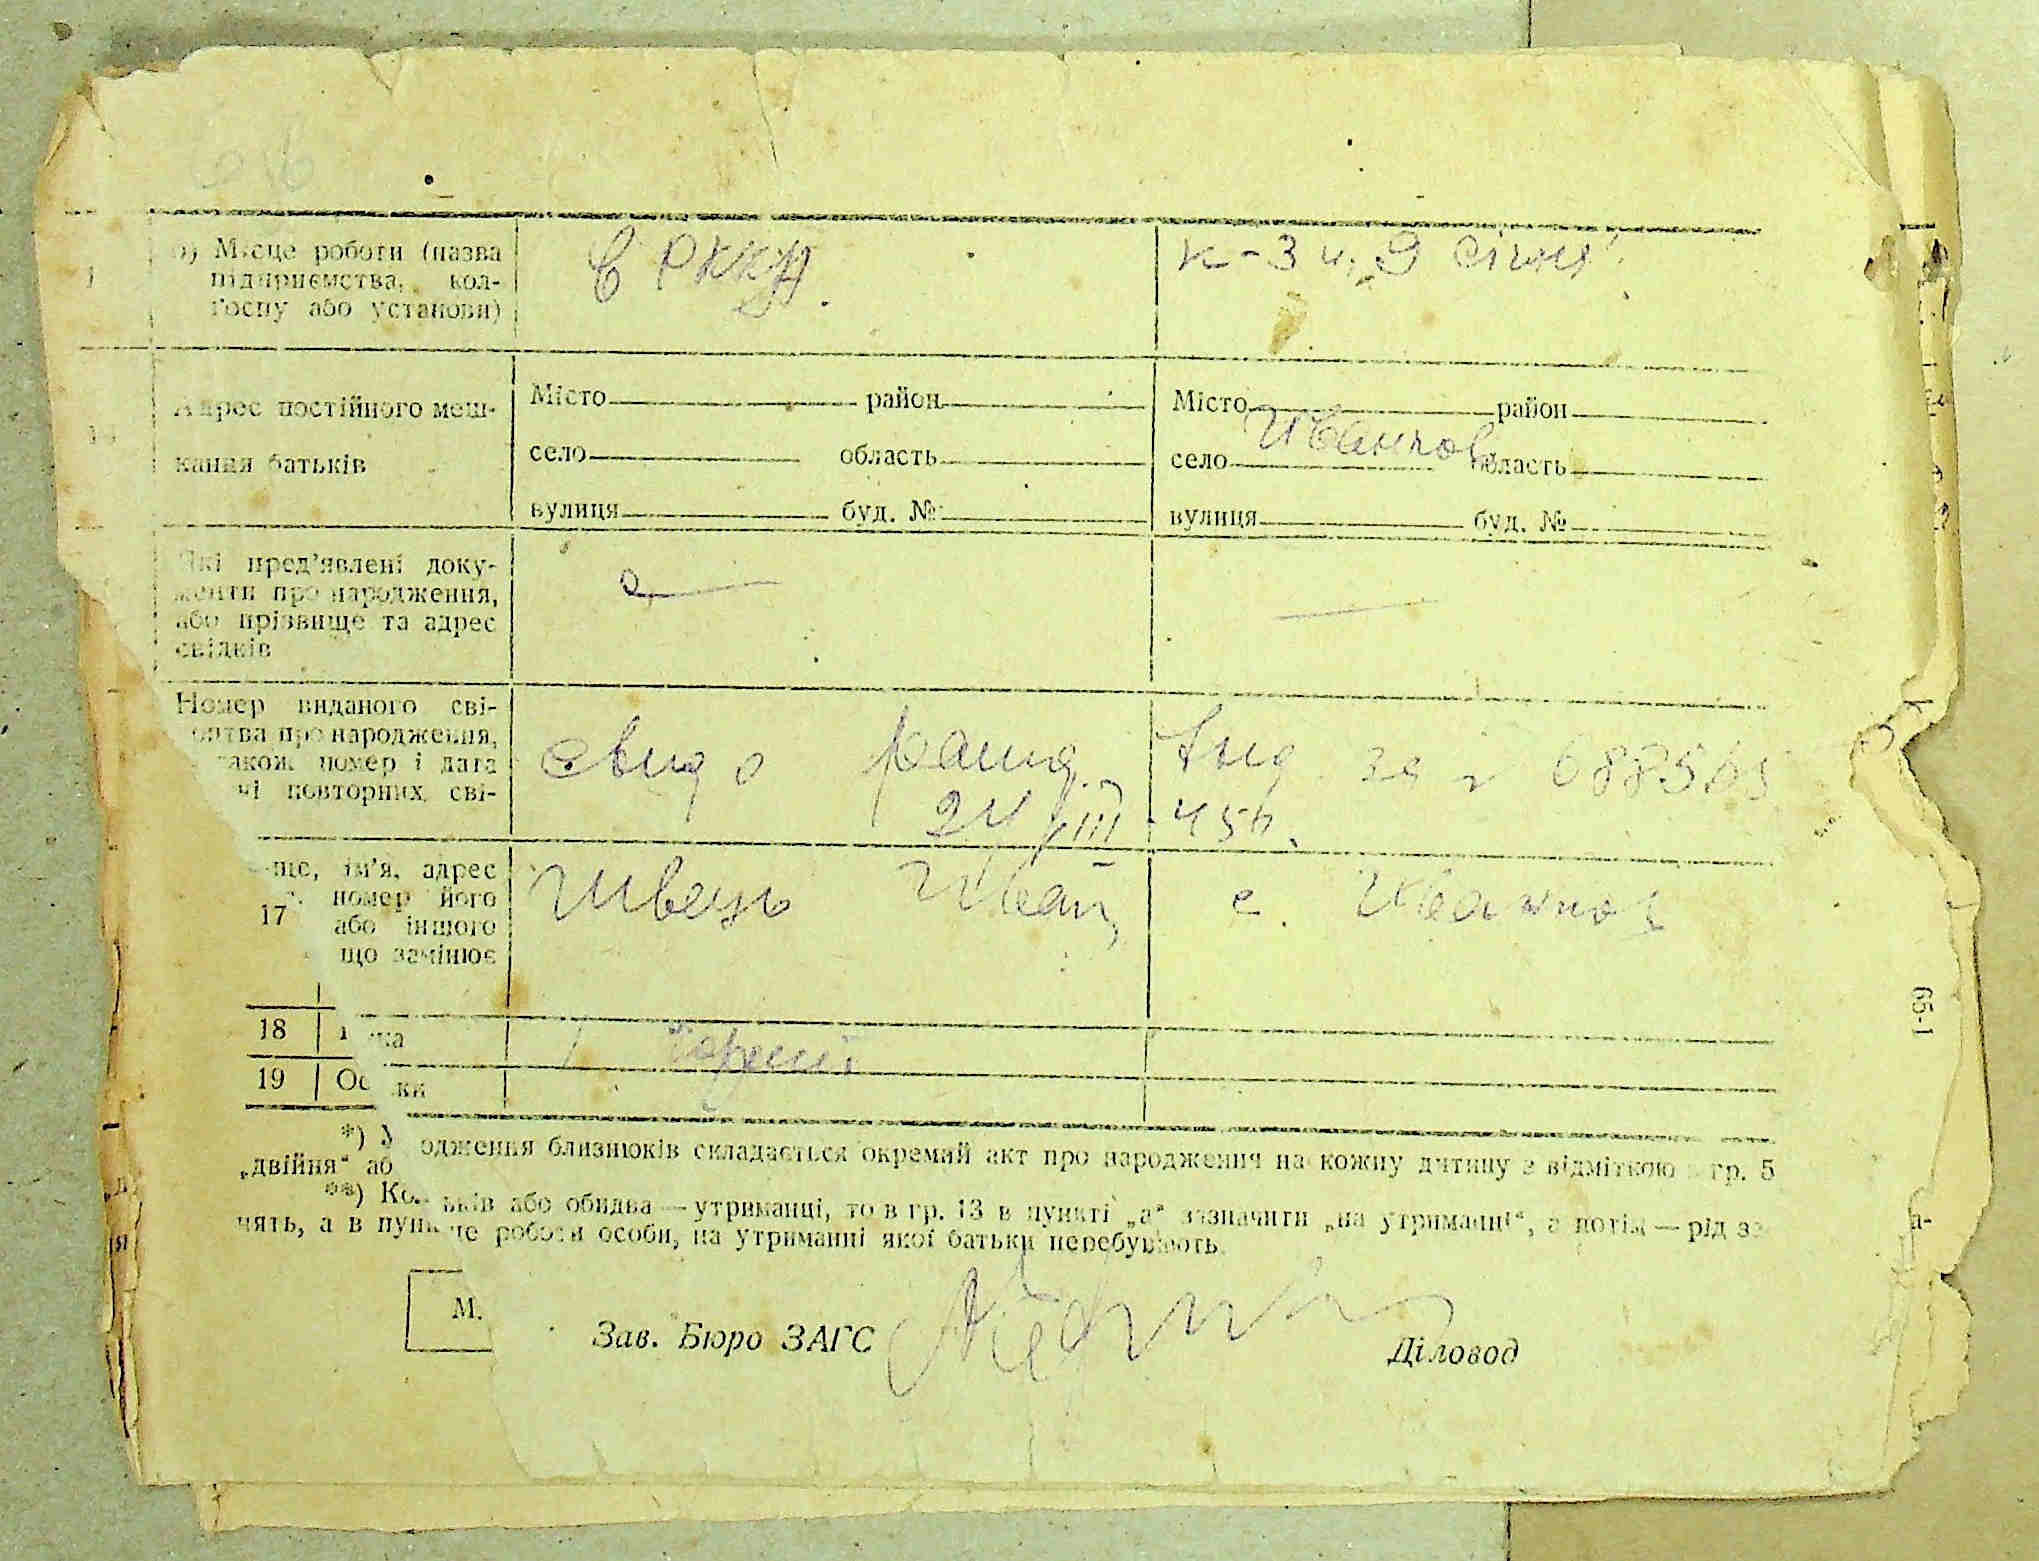 в) Місце роботи (назва
підприємства, кол-
госпу або установи)
В РККА.
к-з и. 9 січня
Адрес постійного меш-
кання батьків
Місто район
село область
вулиця буд. №
Місто район
село Иванков область
вулиця буд. №
Які пред'явлені доку-
менти про народження,
або прізвище та адрес
свідків
Номер виданого сві-
про народження,
також номер і дата
повторних сві-
24/VIII-45
ім'я, адрес
17 номер його
або іншого
що замінює
Швець Иван с. Иванков
18
19
*) У одження близнюків складається окремий акт про народження на кожну дитину з відміткою в гр. 5
„двійня“ аб
**) Ко ьків або обидва — утриманці, то в гр. 13 в пункті „а“ зазначити „на утриманні“, а потім — рід за-
нять, а в пунк це роботи особи, на утриманні якої батьки перебувають.
М.
Зав. Бюро ЗАГС
Діловод
65-1